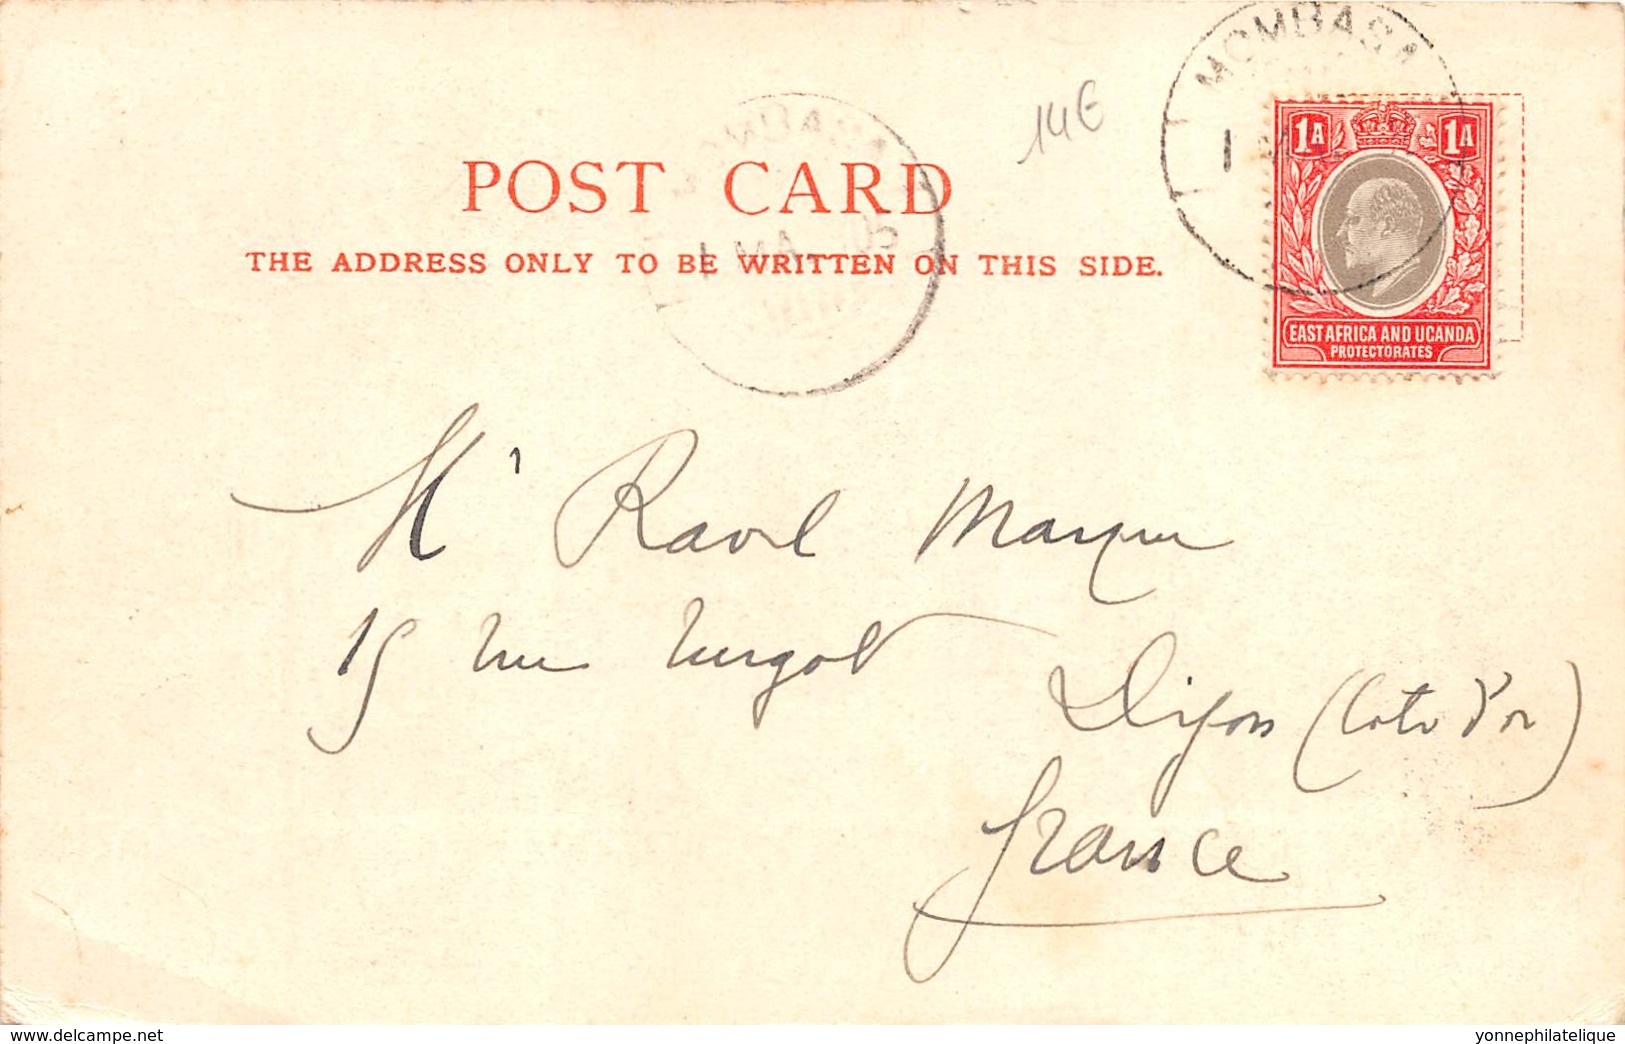 MOMBASA
14€
1A 1A
POST CARD
1 MA 05
THE ADDRESS ONLY TO BE WRITTEN ON THIS SIDE.
EAST AFRICA AND UGANDA
PROTECTORATES
Mr Raoul
15 rue Turgot
Dijon (Cote d'or)
France
www.delcampe.net
yonnephilatelique